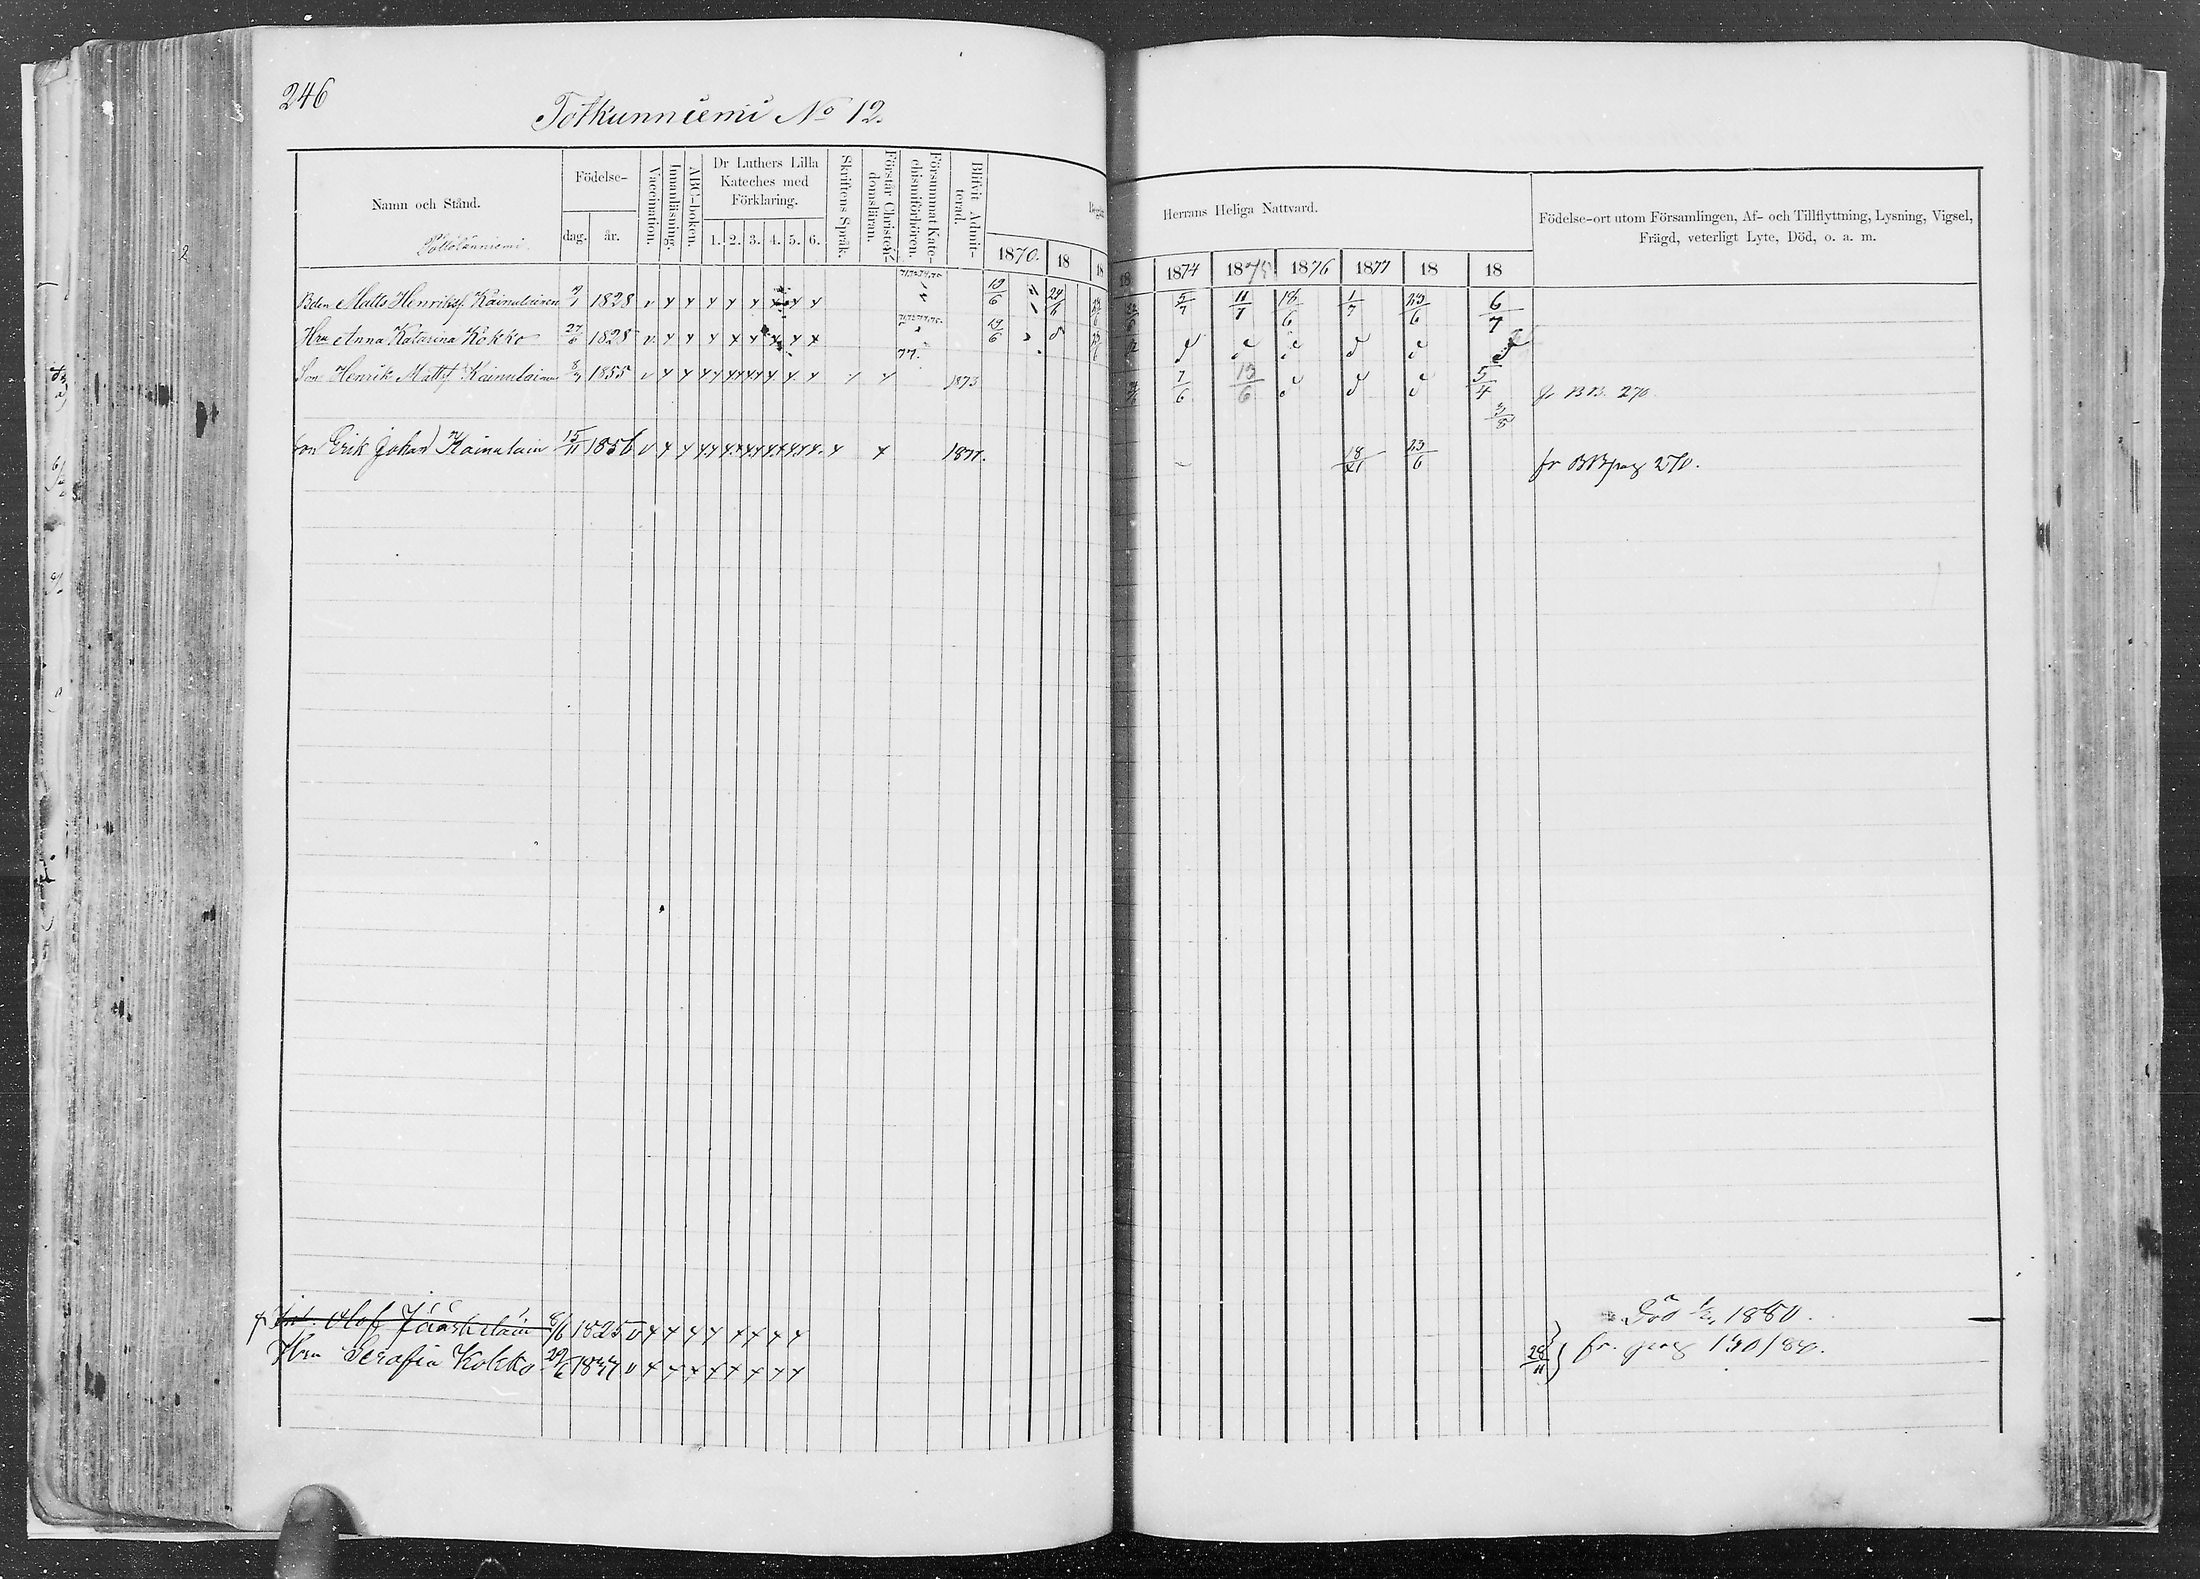 246
Totkunniemi No 12.
Namn och Stånd.
Födelse-
dag.
år.
Vaccination.
Innanläsning.
ABC-boken.
Dr Luthers Lilla
Kateches med
Förklaring.
1. 2. 3. 4. 5. 6.
Skriftens Språk.
Förstår Christen-
domsläran.
Försummat Kate-
chismiförhören.
Blifvit Admit-
terad.
1870. 18 18
Herrans Heliga Nattvard.
18 1874 1875 1876 1877 18 18
Födelse-ort utom Församlingen, Af- och Tillflyttning, Lysning, Vigsel,
Frägd, veterligt Lyte, Död, o. a. m.
Pöllölänniemi.
Bden Matts Henriksf Kainulainen 2/1 1828 19/6 24/6 5/7 11/7 18/6 1/7 23/6 6/7
Hru Anna Katarina Kokko 27/6 1828 19/6
77.
Son Henrik Mattsf Kainulainen 8/7 1855 1873 7/6 13/6 5/4 fr BB. 270.
3/8
son Erik Johan Kainulain 15/11 1856 1877. 18/11 23/6 fr BB pag 270.
Olof Jääskeläin 8/6 1825 Död 1880.
Hru Serafia Kokko 29/6 1837 28/11 fr. pag 130/80.